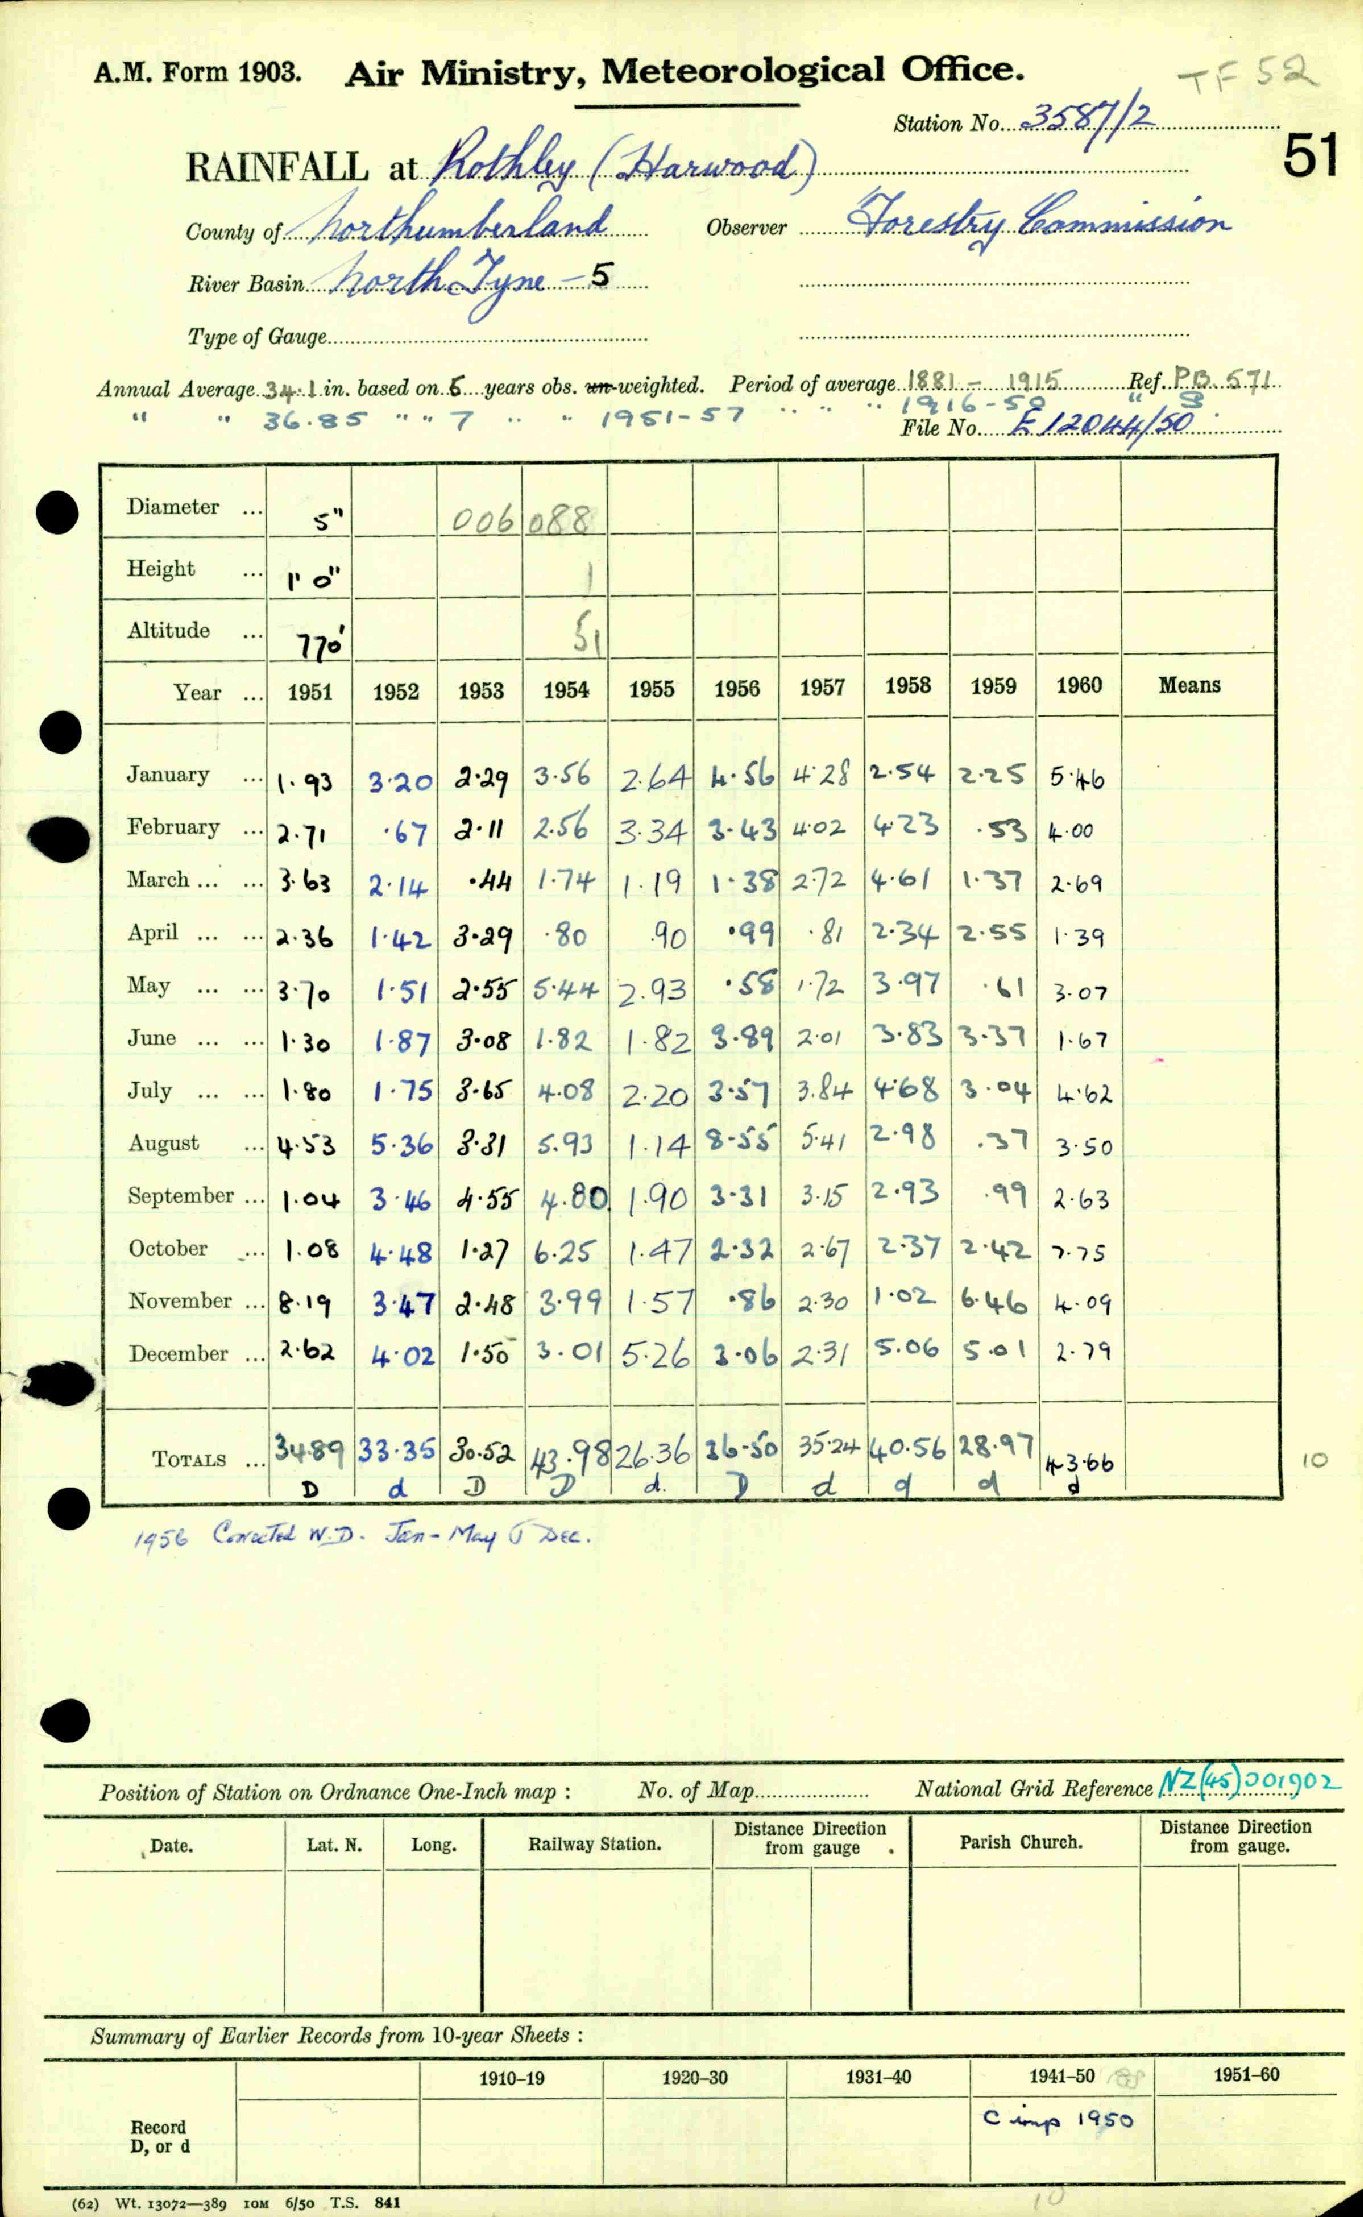 A.M. Form 1903. Air Ministry, Meteorological Office. TF 52
Station No. 3587/2
51
RAINFALL at Rothley (Harwood)
County of Northumberland Observer Forestry Commission
River Basin North Tyne - 5
Type of Gauge
Annual Average 34.1 in. based on 5 years obs. un-weighted. Period of average 1881 - 1915 Ref. PB 571
" " 36.85 " " 7 " " 1951-57 " " " 1916-50 " S
File No. E 12044/50
Diameter ... 5" 006 088
Height ... 1' 0" 1
Altitude ... 770' 51
Year ... 1951 1952 1953 1954 1955 1956 1957 1958 1959 1960 Means
January ... 1.93 3.20 2.29 3.56 2.64 4.56 4.28 2.54 2.25 5.46
February ... 2.71 .67 2.11 2.56 3.34 3.43 4.02 4.23 .53 4.00
March ... ... 3.63 2.14 .44 1.74 1.19 1.38 2.72 4.61 1.37 2.69
April ... ... 2.36 1.42 3.29 .80 .90 .99 .81 2.34 2.55 1.39
May ... ... 3.70 1.51 2.55 5.44 2.93 .58 1.72 3.97 .61 3.07
June ... ... 1.30 1.87 3.08 1.82 1.82 3.89 2.01 3.83 3.37 1.67
July ... ... 1.80 1.75 3.65 4.08 2.20 3.57 3.84 4.68 3.04 4.62
August ... 4.53 5.36 3.31 5.93 1.14 8.55 5.41 2.98 .37 3.50
September ... 1.04 3.46 4.55 4.80 1.90 3.31 3.15 2.93 .99 2.63
October ... 1.08 4.48 1.27 6.25 1.47 2.32 2.67 2.37 2.42 7.75
November ... 8.19 3.47 2.48 3.99 1.57 .86 2.30 1.02 6.46 4.09
December ... 2.62 4.02 1.50 3.01 5.26 3.06 2.31 5.06 5.01 2.79
TOTALS ... 34.89 33.35 30.52 43.98 26.36 36.50 35.24 40.56 28.97 43.66 10
D d D D d. D d d d d
1956 Corrected W.D. Jan - May & Dec.
Position of Station on Ordnance One-Inch map : No. of Map National Grid Reference NZ(45)001902
Date. Lat. N. Long. Railway Station. Distance Direction from gauge Parish Church. Distance Direction from gauge.
Summary of Earlier Records from 10-year Sheets :
1910–19 1920–30 1931–40 1941–50 1951–60
Record D, or d
C imp 1950
(62) Wt. 13072—389 10M 6/50 T.S. 841
10